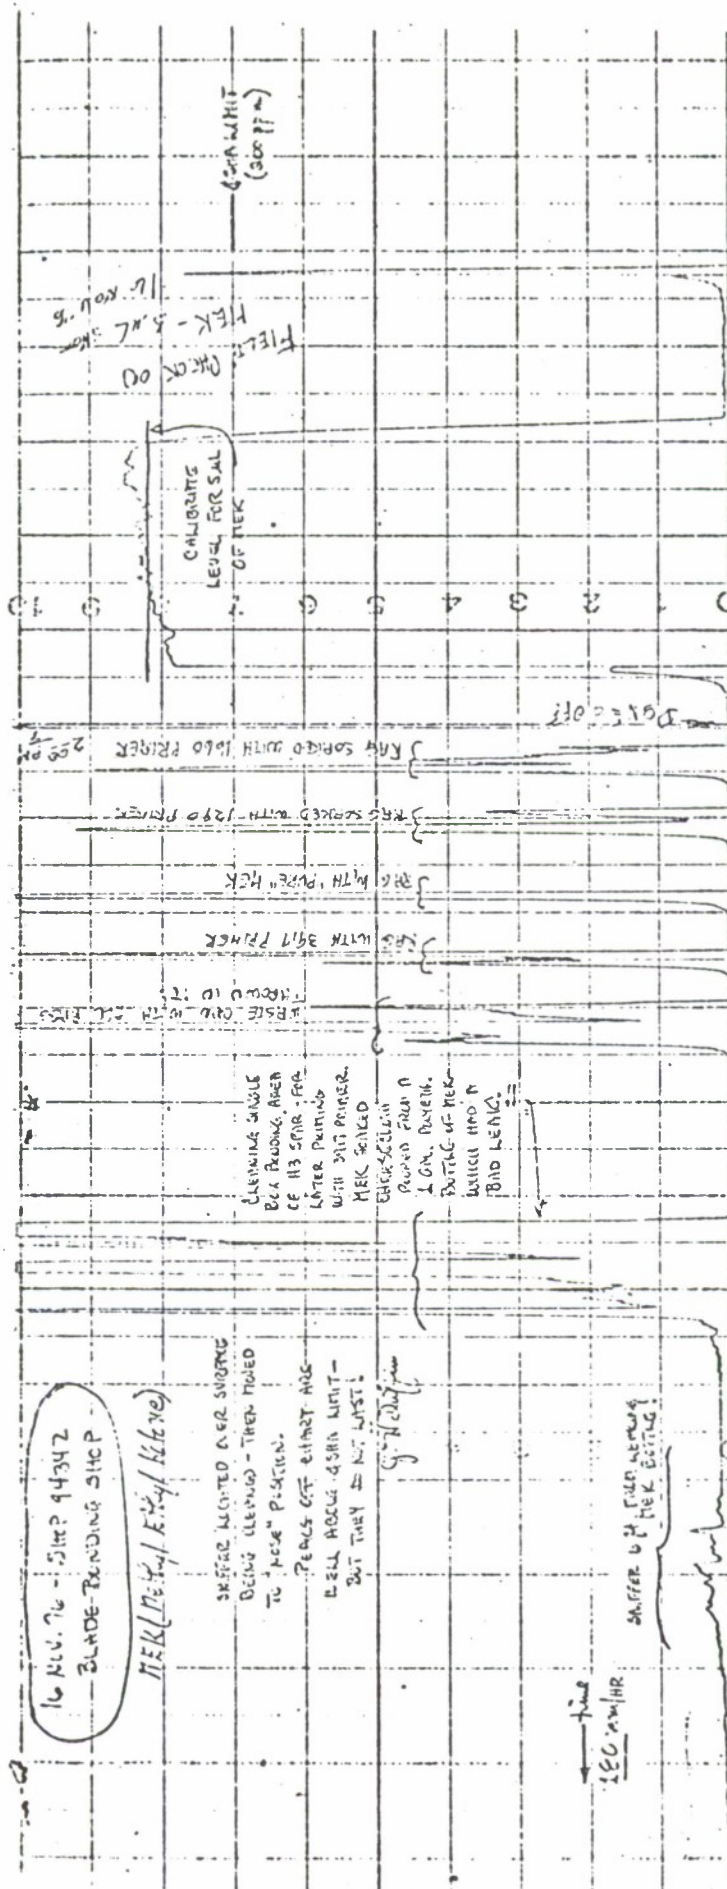 16 NOV. 76 - SHOP 94342
BLADE-BONDING SHOP
MEK (Methyl Ethyl Ketone)
SNIFFER LOCATED OVER SURFACE
BEING CLEANED - THEN MOVED
TO "NOSE" POSITION.
PEAKS OFF CHART ARE
WELL ABOVE OSHA LIMIT -
BUT THEY DO NOT LAST!
time
180 mm/HR
SNIFFER 6" FROM LEAKING
MEK BOTTLE!
CLEANING SINGLE
BOX BONDING AREA
OF H3 SPAR - FOR
LATER PRIMING
WITH 3917 PRIMER.
MEK SOAKED
CHEESECLOTH
POURED FROM A
1 GAL. POLYETH.
BOTTLE OF MEK
WHICH HAD A
BAD LEAK!
WASTE CAN WITH ALL RAGS
THROWN IN IT
RAG WITH 3917 PRIMER
RAG WITH "PURE" MEK
RAG SOAKED WITH 1290 PRIMER
RAG SOAKED WITH 1660 PRIMER
2:00 PM
OFF
CALIBRATE
LEVEL FOR 5µL
OF MEK
FIELD
CHECK ON
MEK - 5µL SHOT
16 NOV 76
OSHA LIMIT
(200 ppm)